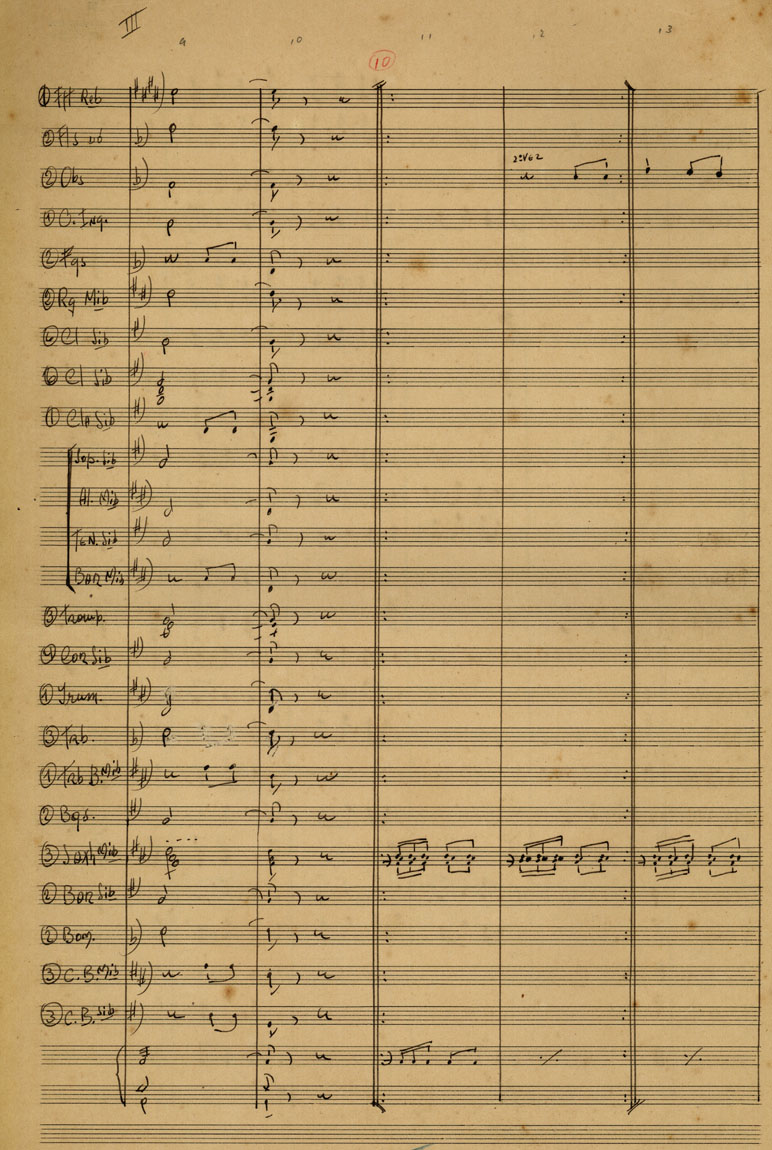 III
9 10 11 12 13
10
① Ftt Reb
② Fls dó
② Obs
2ª Vez
① C. Ing.
② Fgs
② Rq Mib
⑥ Cl Sib
⑥ Cl Sib
① Cla Sib
Sop. Sib
Al. Mib
Ten. Sib
Bar Mib
③ Tromp.
④ Cor Sib
① Trum.
③ Trb.
① Trb B. Mib
② Bgs.
③ Saxh Mib
② Bar Sib
② Bom.
③ C.B. Mib
③ C.B. Sib